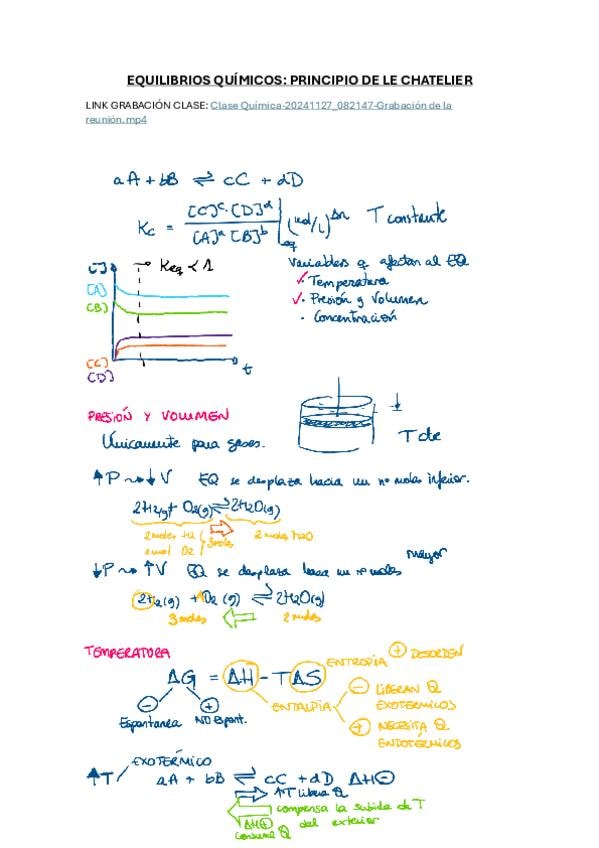 EQUILIBRIOS QUÍMICOS: PRINCIPIO DE LE CHATELIER
LINK GRABACIÓN CLASE: Clase Química-20241127_082147-Grabación de la
reunión.mp4
aA + bB ⇌ cC + dD
Kc = [C]^c · [D]^d / [A]^a [B]^b |eq (mol/L)^Δn T constante
[ ] → Keq < 1
[A]
[B]
[C]
[D]
t
Variables q afectan al EQ
✓ · Temperatura
✓ · Presión y Volumen
· Concentración
T cte
PRESIÓN Y VOLUMEN
Únicamente para gases.
↑P ↓V EQ se desplaza hacia un nº moles inferior.
2H2(g) + O2(g) ⇌ 2H2O(g)
2 moles H2
1 mol O2
3 moles
2 moles H2O
↓P ↑V EQ se desplaza hacia un nº moles mayor
2H2(g) + O2(g) ⇌ 2H2O(g)
3 moles ⇐ 2 moles
TEMPERATURA
ΔG = ΔH - TΔS
ENTROPÍA ⊕ DESORDEN
⊖ Espontanea
⊕ NO Espont.
ENTALPIA
⊖ LIBERAN Q
EXOTERMICOS
⊕ NECESITA Q
ENDOTÉRMICOS
↑T / EXOTÉRMICO
aA + bB ⇌ cC + dD ΔH⊖
⇒ ↑T libera Q
⇐ compensa la subida de T
ΔH⊕ del exterior
Consume Q